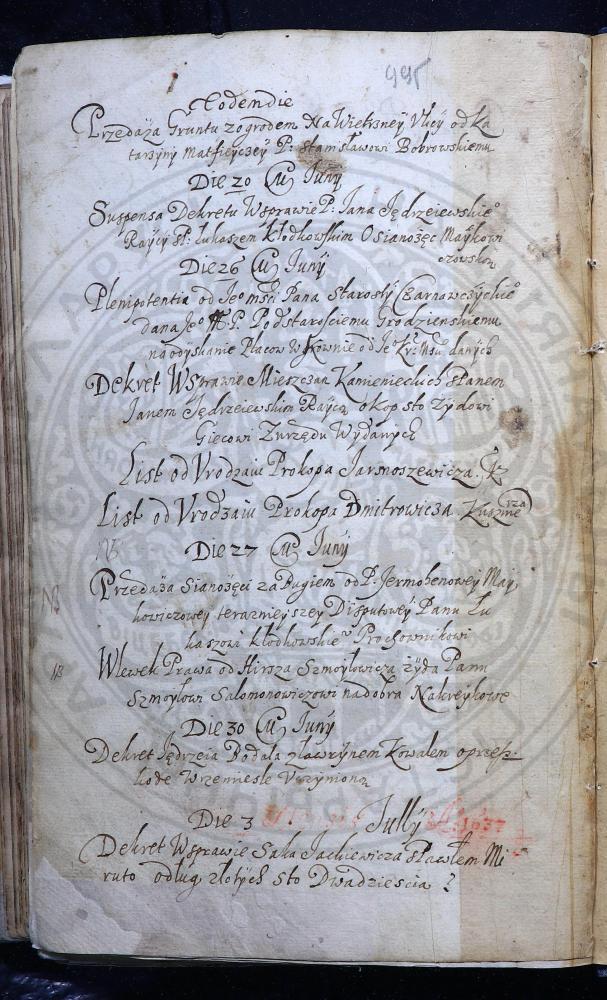 995
Eodem die
Przedaża Gruntu z ogrodem Na Wietrzney Vlicy od Ka
tarzyny Matfieyczey P: Stanisławowi Bobrowskiemu
Die 20 Juny
Suspensa Dekretu Wsprawie P: Jana Jędrzeiewskieo
Raycy sP: Łukaszem Kłodkowskim O sianożęc Maykowi
czowską
Die 26 Juny
Plenipotentia od Jeo Msci Pana Starosty Czarnawczyckieo
dana Jeo M P. Podstarosciemu Grodzienskiemu
na odyskanie Placow w Kownie od Jeo danych
Dekret Wsprawie Mieszczan Kamienieckich sPanem
Janem Jędrzeiewskim Raycą o kop sto Zydowi
Giecowi Zurzędu Wydanych
List od Vrodzaiu Prokopa Jarmoszewicza
List od Vrodzaiu Prokopa Dmitrowicza Kusznierza
NB Die 27 Juny
NB Przedaża Sianożęci za Bugiem od P: Jermohenowey May
kowiczowey teraznieyszey Disputowey Panu Łu
kaszowi Kłodkowskieu Prochownikowi
NB Wlewek Prawa od Hirsza Szmoyłowicza żyda Panu
Szmoyłowi Salomonowiczowi na dobra
Die 30 Juny
Dekret Jędrzeia Bodala zławrynem Kowalem o przesz
kode Wrzemiesle Vczynioną
Die 3 Jully A: 1637
Dekret Wsprawie Saka Jackiewicza sPawłem Mi
ruto odług złotych sto Dwadziescia